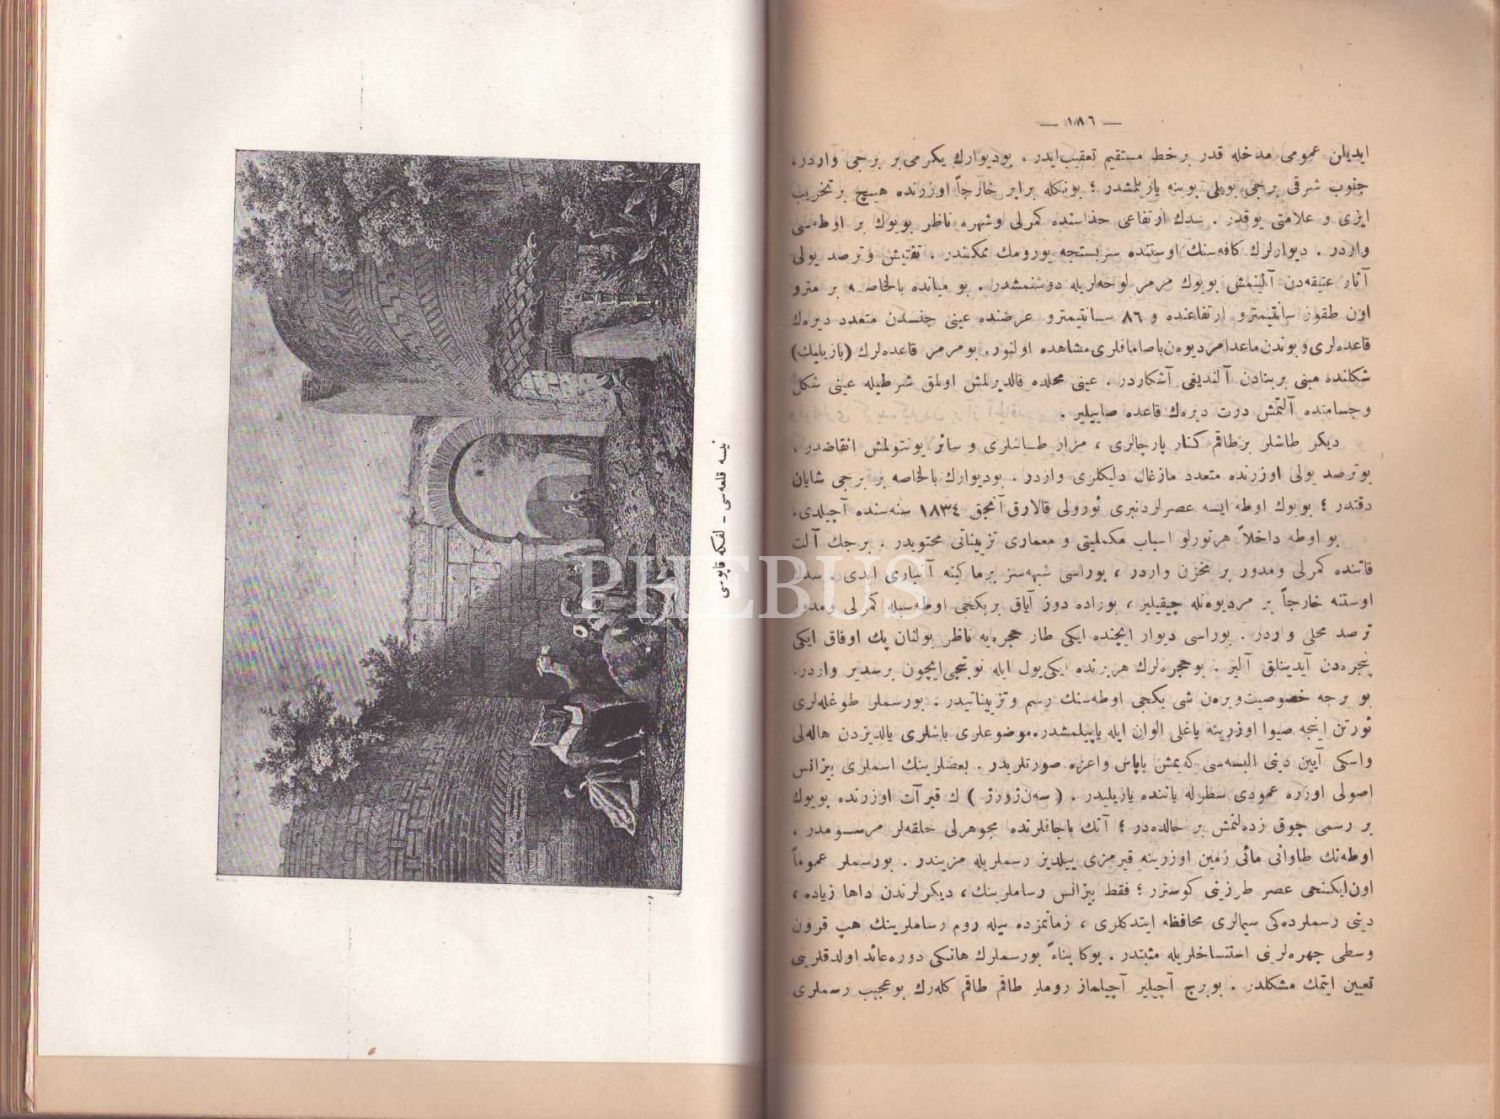 — ١٨٦ —
ایدیلن عمومی مدخله قدر برخط مستقیم تعقیب‌ایدر . بودیوارك یكرمی‌بر برجی واردر.
جنوب شرقی برجی بویلی بوینه یاریلمشدر ؛ بونكله برابر خارجاً اوزرنده هیچ بر تخریب
ایزی و علامتی یوقدر . سدك ارتفاعی حذاسنده كمرلی وشهره ناظر بویوك بر اوطه‌سی
واردر . دیوارلرك كافه‌سنك اوستنده سربستجه یورومك ممكندر . تفتیش وترصد یولی
آثار عتیقه‌دن آلینمش بویوك مرمر لوحه‌لریله دوشنمشدر . بو میانده بالخاصه بر مترو
اون طقوز سانتیمترو ارتفاعنده و ٨٦ سانتیمترو عرضنده عینی جنسدن متعدد دیره‌ك
قاعده‌لری‌و بوندن‌ماعدا مردیون‌باصامقلری مشاهده اولنور. بومرمر قاعده‌لرك (بازیلیك)
شكلنده مبنی بربنادن آلندیغی آشكاردر . عینی محلده قالدیرلمش اولمق شرطیله عینی شكل
وجسامتده آلتمش درت دیره‌ك قاعده صاییلیر .
دیكر طاشلر برطاقم كنار پارچالری ، مزار طاشلری و سائر یونتولمش انقاضدر .
بوترصد یولی اوزرنده متعدد مازغال دلیكلری واردر . بودیوارك بالخاصه بر برجی شایان
دقتدر ؛ بویوك اوطه ایسه عصرلردنبری ئورولی قالارق آنجق ١٨٣٤ سنه‌سنده آچیلدی.
بو اوطه داخلاً هرتورلو اسباب مكملیتی و معماری تزییناتی محتویدر . برجك آلت
قاتنده كمرلی ومدور بر مخزن واردر ، بوراسی شبهه‌سز برماكینه آنباری ایدی . سدك
اوستنه خارجاً بر مردیوه‌نله چیقیلیر ، بوراده دوز آیاق بریكجی اوطه‌سیله كمرلی ومدور
ترصد محلی واردر . بوراسی دیوار ایچنده ایكی طار حجره‌یه ناظر بولنان پك اوفاق ایكی
پنجره‌دن آیدینلق آلیر . بوحجره‌لرك هربرنده ایكی‌یول ایله نوبتجی‌ایچون برسدیر واردر.
بو برجه خصوصیت‌ویره‌ن شی بكجی اوطه‌سنك رسم وتزییناتیدر . بورسملر طوغله‌لری
ئورتن اینجه صیوا اوزرینه یاغلی الوان ایله یاپیلمشدر.موضوعلری باشلری یالدیزدن هاله‌لی
واسكی آیین دینی البسه‌سی كه‌یمش پاپاس واعزه صورتلریدر . بعضلرینك اسملری بیزانس
اصولی اوزره عمودی سطرله یاننده یازیلیدر . ( سه‌ن‌ژورژ ) ك قیر آت اوزرنده بویوك
بر رسمی چوق زده‌لنمش بر حالده‌در ؛ آتك باجاقلرنده مجوهرلی خلقه‌لر مرسومدر ،
اوطه‌نك طاوانی مائی زمین اوزرینه قیرمزی ییلدیز رسملریله مزیندر . بورسملر عموماً
اون‌ایكنجی عصر طرزینی كوسترر ؛ فقط بیزانس رساملرینك ، دیكرلرندن داها زیاده ،
دینی رسملرده‌كی سیمالری محافظه ایتدكلری ، زمانمزده بیله روم رساملرینك هپ قرون
وسطی چهره‌لرینی استنساخلریله مثبتدر . بوكا بناءً بورسملرك هانكی دوره‌عائد اولدقلرینی
تعیین ایتمك مشكلدر . بوبرج آچیلیر آچیلماز روملر طاقم طاقم كله‌رك بوعجیب رسملری
نیسه قلعه‌سی - لفكه قاپوسی
PHEBUS